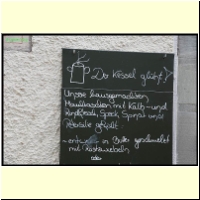 Da Kessel glüht!
Unsere hausgemachten
Maultaschen mit Kalb- und
Rindfleisch, Speck, Spinat und
gefüllt
- entweder in Butter geschmelzt
mit
oder